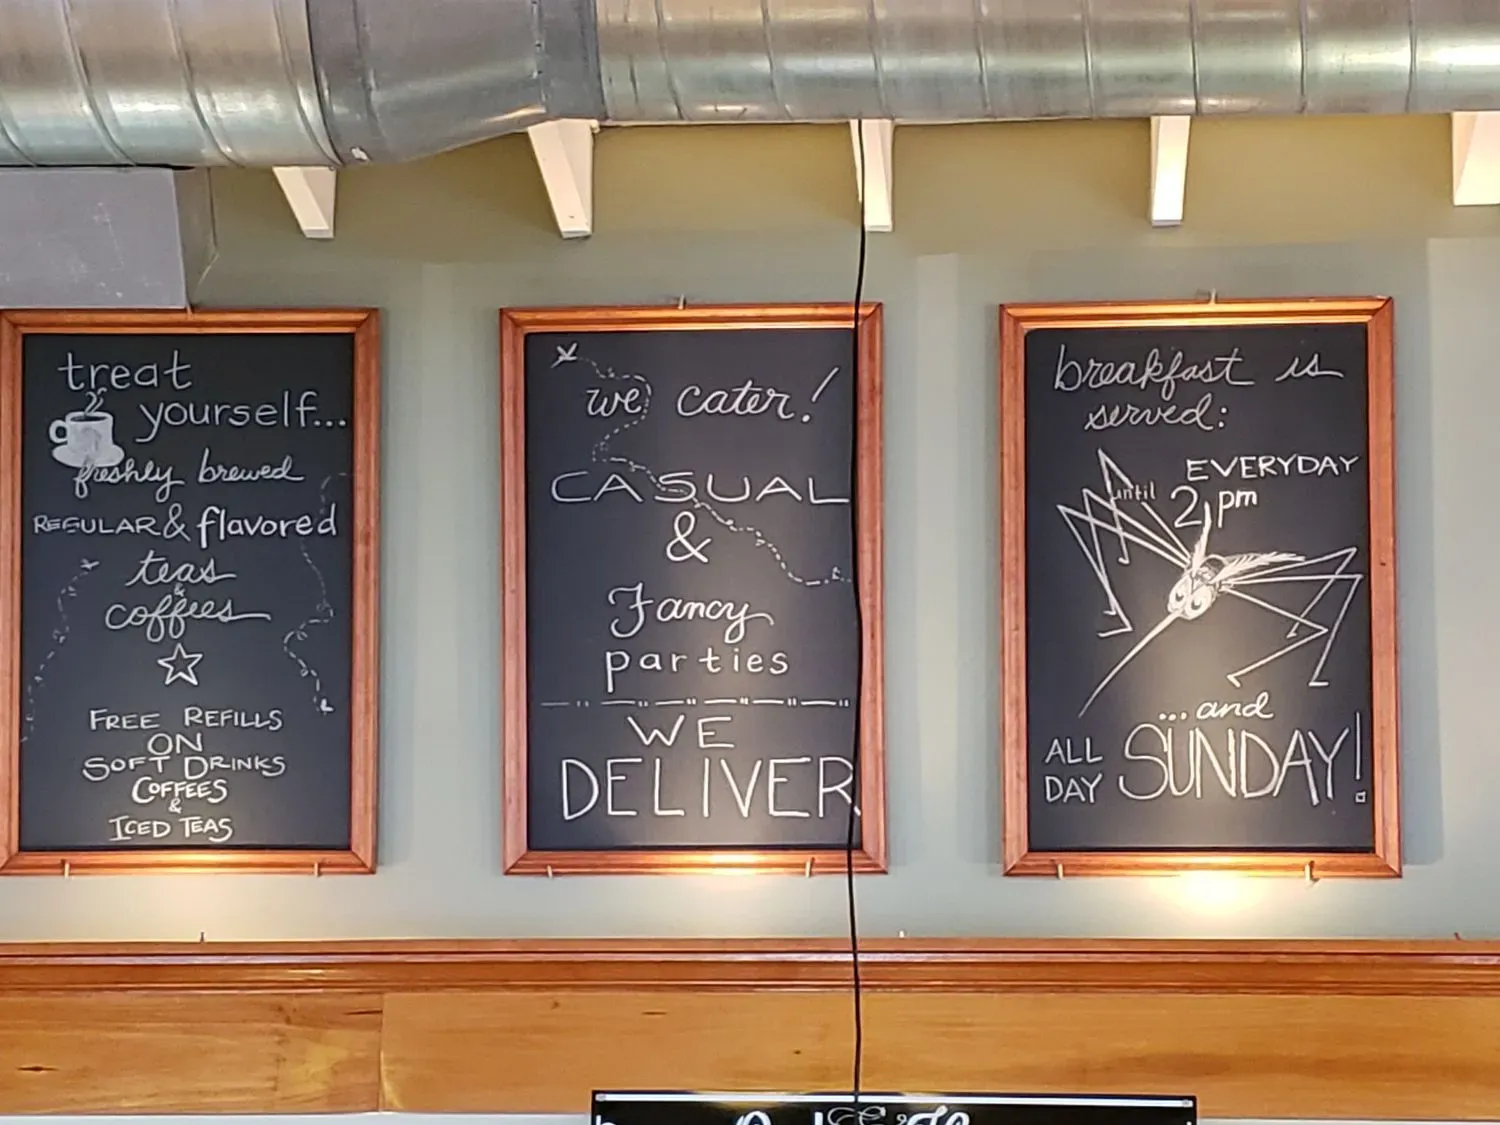 treat
yourself...
freshly brewed
REGULAR & flavored
teas
&
coffees
FREE REFILLS
ON
SOFT DRINKS
COFFEES
&
ICED TEAS
we cater!
CASUAL
&
Fancy
parties
WE
DELIVER
breakfast is
served:
EVERYDAY
until 2 pm
...and
ALL DAY SUNDAY!